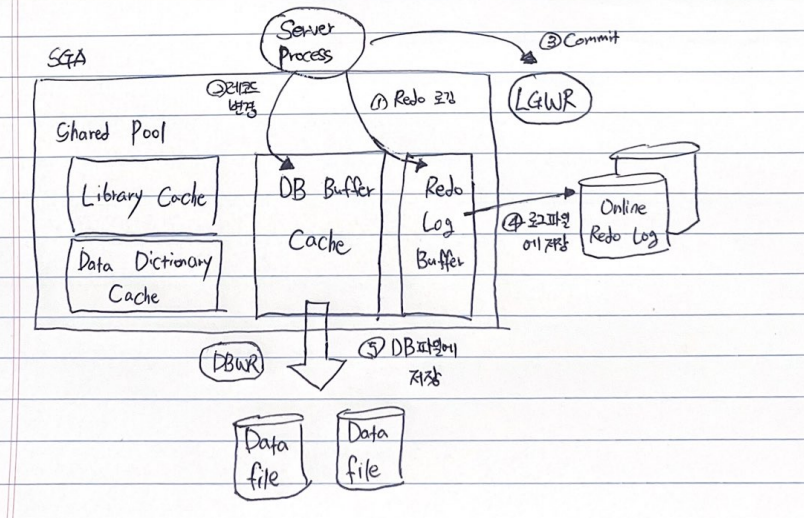 Server
Process
③ Commit
SGA
② 레코드
변경
① Redo 로깅
LGWR
Shared Pool
Library Cache
DB Buffer
Cache
Redo
Log
Buffer
④ 로그파일
에 저장
Online
Redo Log
Data Dictionary
Cache
DBWR
⑤ DB파일에
저장
Data
file
Data
file